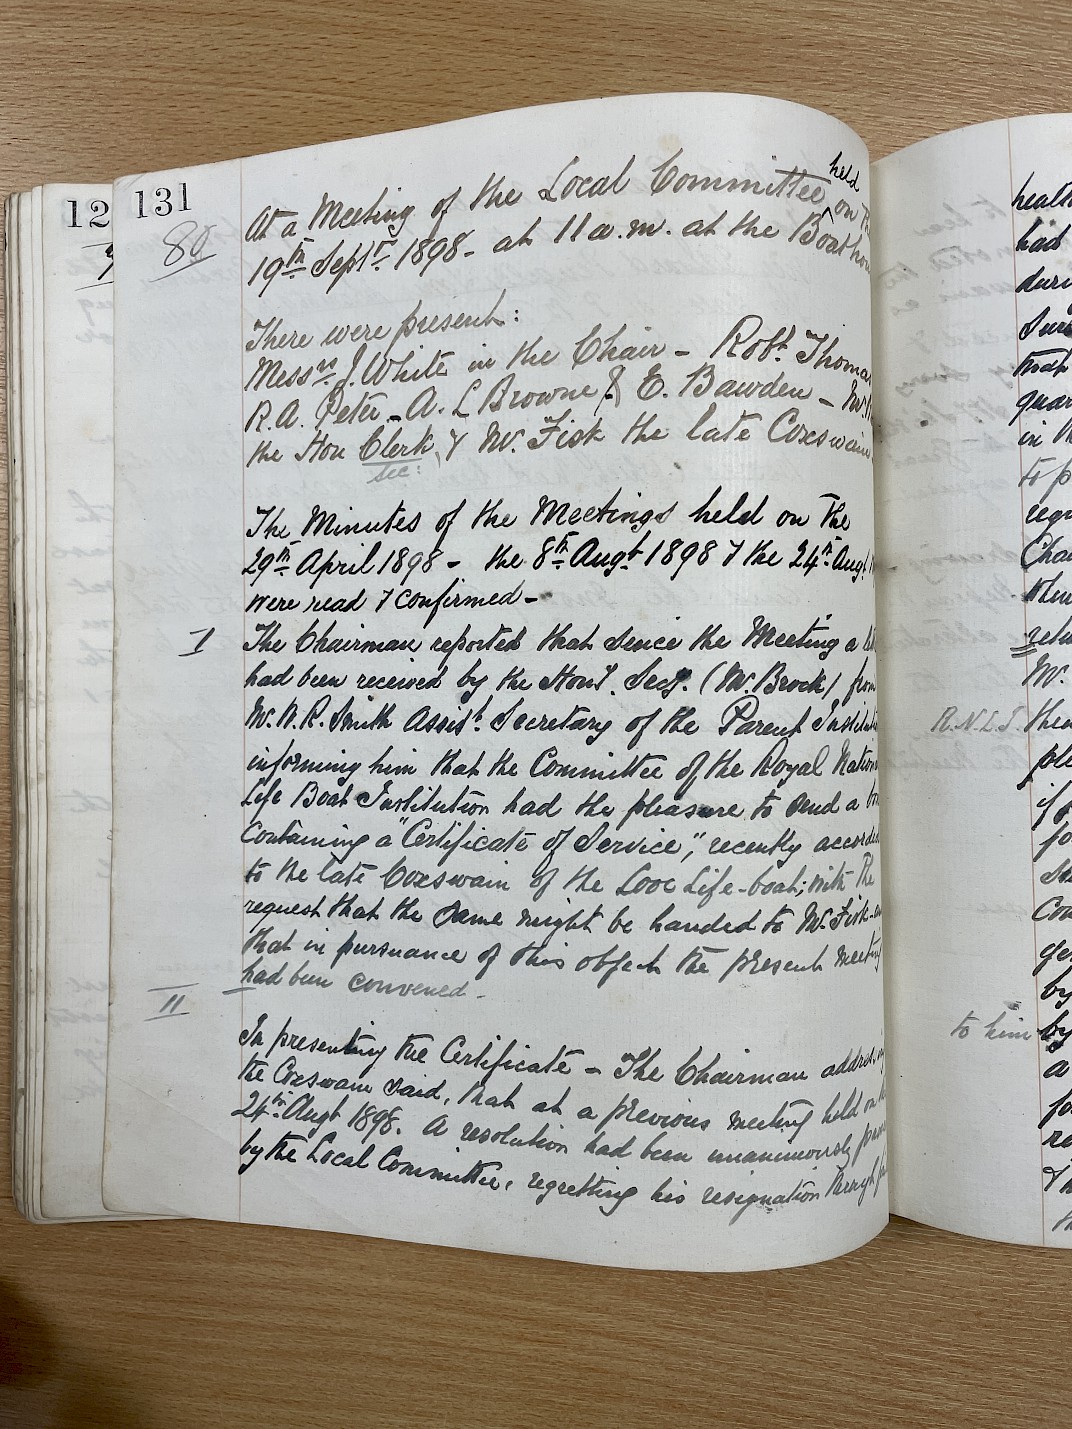 12
131
80
At a Meeting of the Local Committee held on
19th Septr 1898 - at 11 a.m. at the Boathou
There were present:
Messrs J. White in the Chair - Robt Thomas
R.A. Peter - A. L Browne & E. Bawden -
the Hon Clerk, & Mr. Fisk the late Coxswain
Sec:
The Minutes of the Meetings held on the
29th April 1898 - the 8th Augt 1898 & the 24th Augt
were read & confirmed -
I
The Chairman reported that since the Meeting a
had been received by the Hony. Secy. (Mr. Brock) from
Mr. W. R. Smith Assist. Secretary of the Parent Institu
informing him that the Committee of the Royal Nation
Life Boat Institution had the pleasure to send a
Containing a "Certificate of Service", recently accorde
to the late Coxswain of the Looe Life-boat; with the
request that the same might be handed to Mr. Fisk -
that in pursuance of this object the present meeting
had been convened -
II
In presenting the Certificate - The Chairman address
the Coxswain said, that at a previous meeting held on
24th Augt 1898. A resolution had been unanimously pass
by the Local Committee, regretting his resignation through
healt
had
duri
that
quar
in
to p
regu
Chai
Mr.
R.N.L.I.
ple
if
fo
Com
ge
by
to him by
a
fo
re